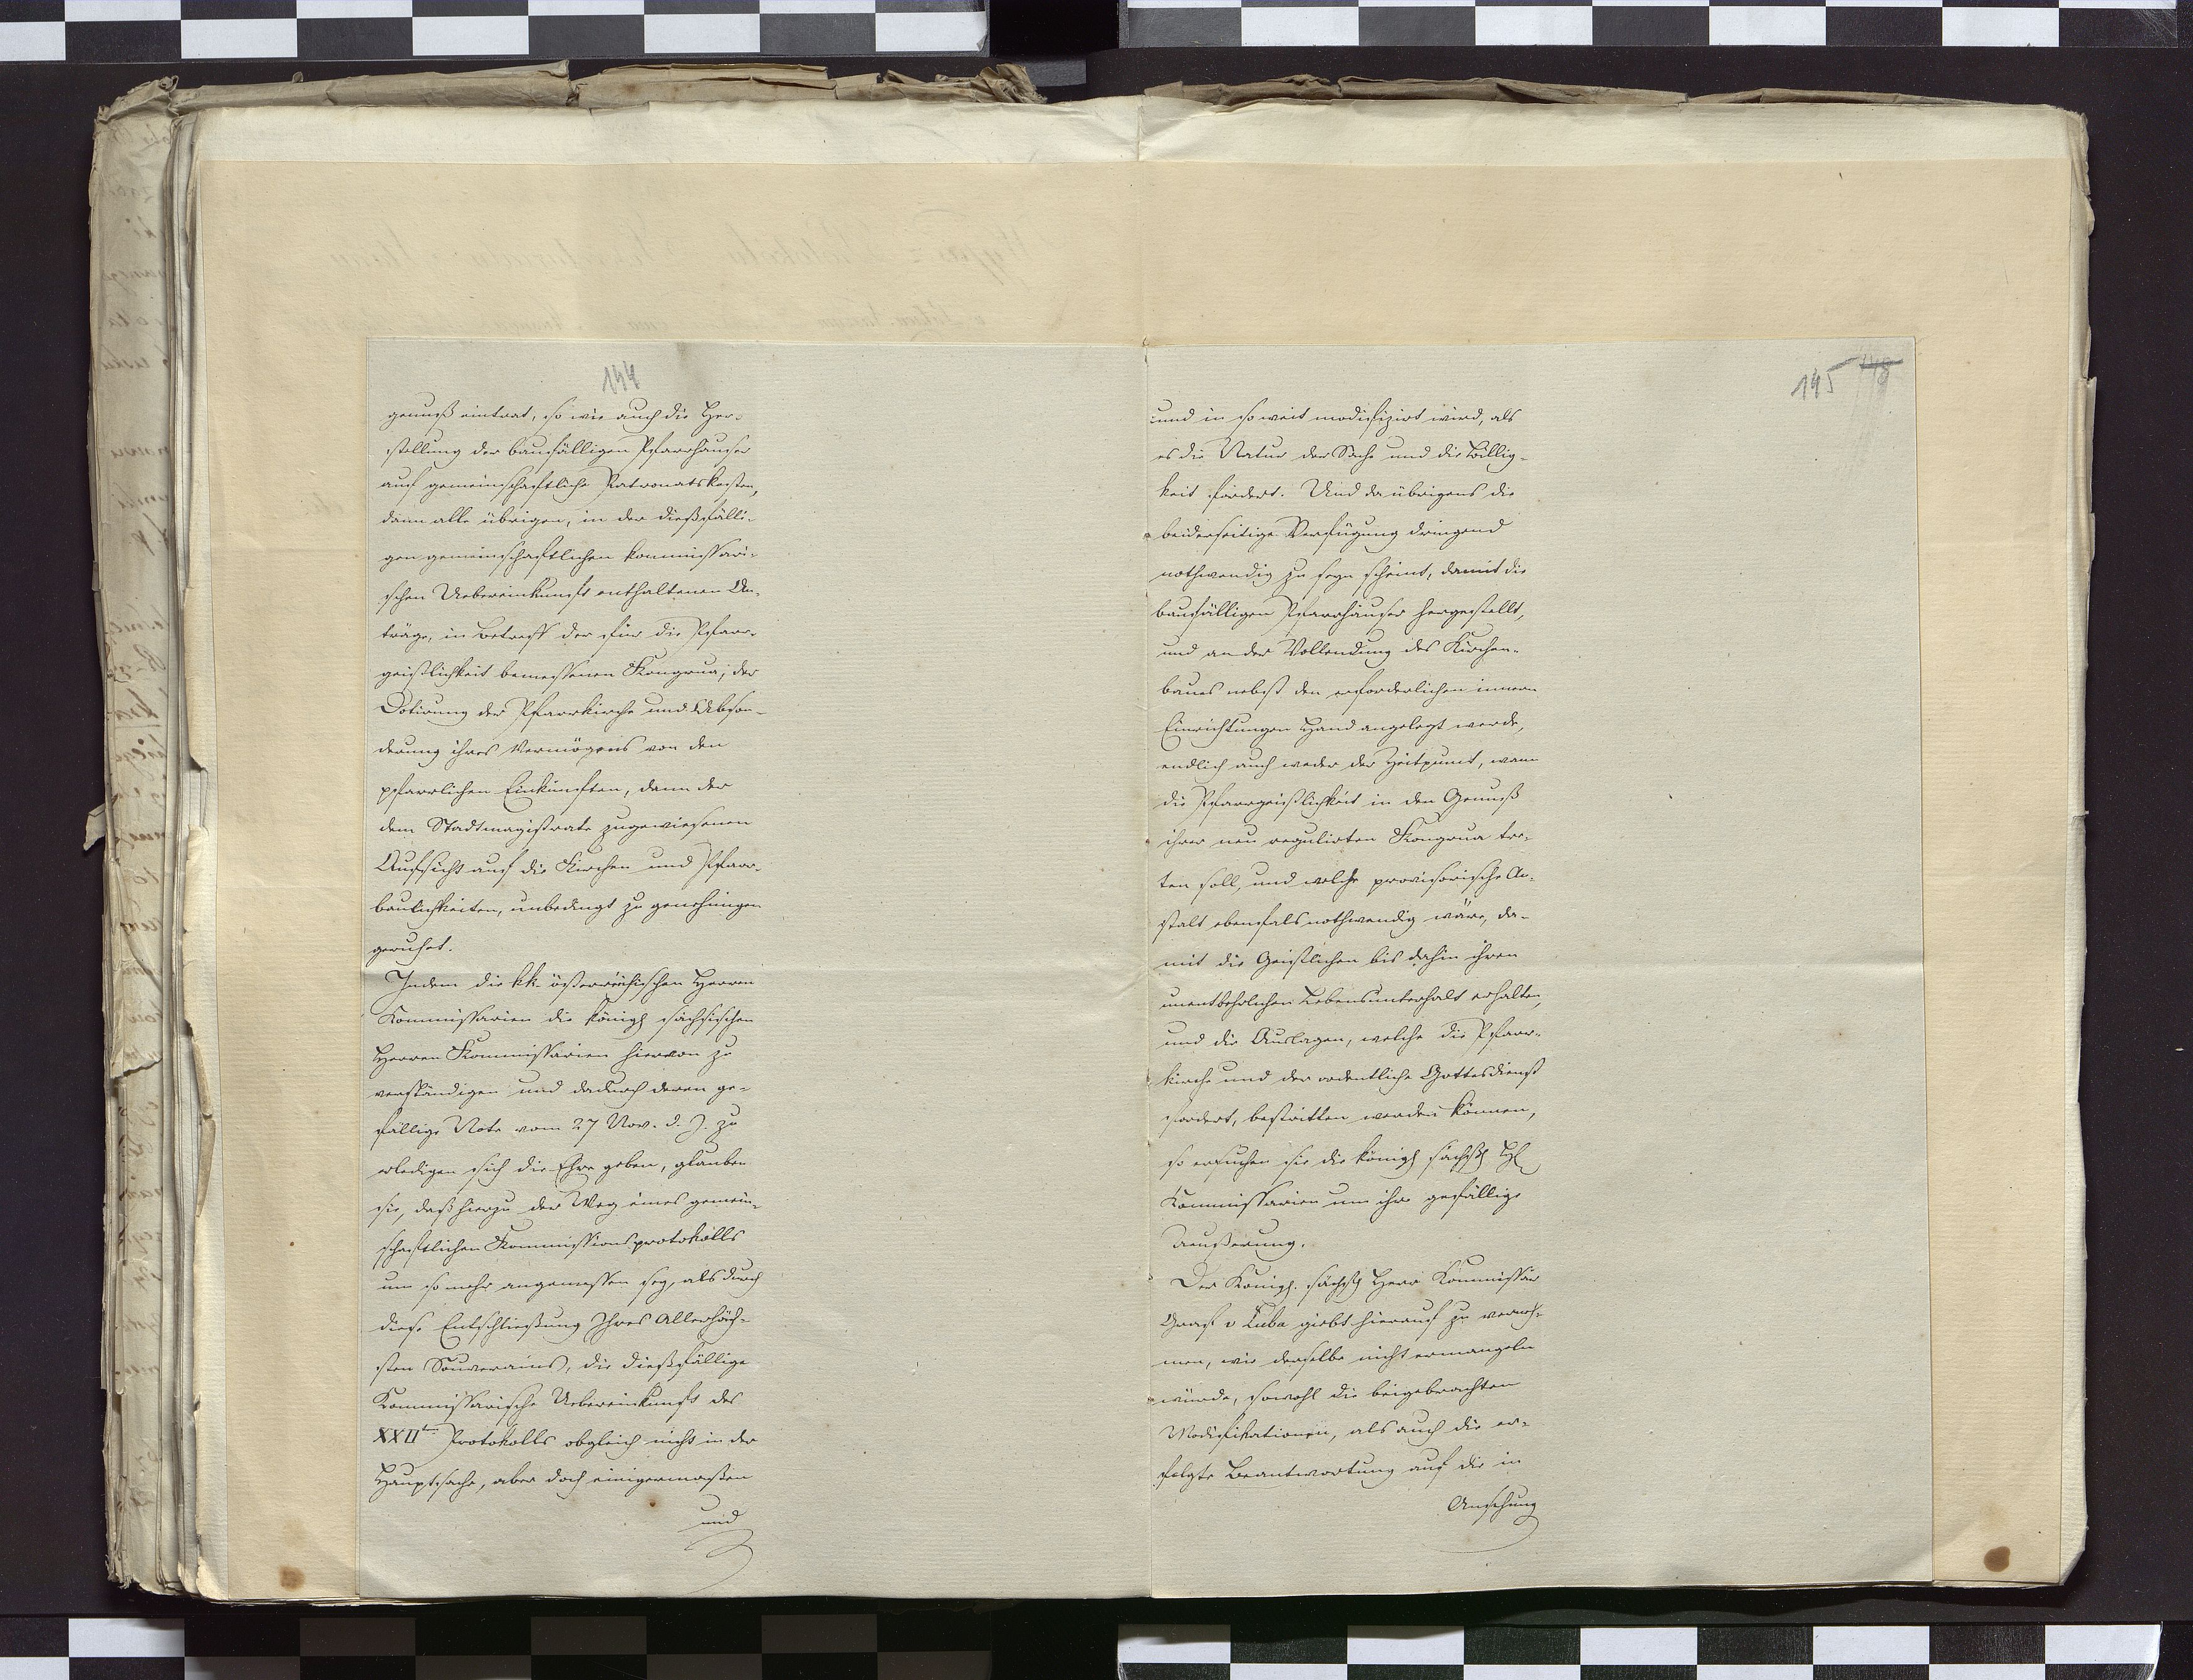 144
genuß eintrat, so wie auch die Her-
stellung der baufälligen Pfarrhäuser
auf gemeinschaftliche Patronatskosten,
dann alle übrigen, in der dießfälli-
gen gemeinschaftlichen kommissari-
schen Uebereinkunft enthaltenen An-
träge, in Betreff der für die Pfarr-
geistlichkeit bemessenen Kongrua, der
Dotirung der Pfarrkirche und Abson-
derung ihres Vermögens von den
pfarrlichen Einkünften, dann der
dem Stadtmagistrate zugewiesenen
Aufsicht auf die Kirchen und Pfarr-
baulichkeiten, unbedingt zu genehmigen
geruhet.
Indem die kk. österreichischen Herren
Kommissarien die königl sächsischen
Herren Kommissarien hievon zu
verständigen und dadurch deren ge-
fällige Note vom 27 Nov. d. J. zu
erledigen sich die Ehre geben, glauben
sie, daß hierzu der Weg eines gemein-
schaftlichen Kommissionsprotokolls
um so mehr angemessen sey, als durch
diese Entschließung Ihres Allerhöch-
sten Souverains, die dießfällige
Kommissarische Uebereinkunft des
XXII ten Protokolls obgleich nicht in der
Hauptsache, aber doch einigermaßen
und
145 148
und in so weit modifizirt wird, als
es die Natur der Sache und die Billig-
keit fördert. Und da übrigens die
beiderseitige Verfügung dringend
nothwendig zu seyn scheint, damit die
baufälligen Pfarrhäuser hergestellt,
und an der Vollendung des Kirchen-
baues nebst den erforderlichen innern
Einrichtungen Hand angelegt werde,
endlich auch weder der Zeitpunct, wann
die Pfarrgeistlichkeit in den Genuß
ihrer neu regulirten Kongrua tre-
ten soll, und welche provisorische An-
stalt ebenfals nothwendig wäre, da-
mit die Geistlichen bis dahin ihren
unentbehrlichen Lebensunterhalt erhalten,
und die Auslagen, welche die Pfarr-
kirche und der ordentliche Gottesdienst
fordert, bestritten werden können,
so ersuchen sie die königl sächß H
Kommissarien um ihre gefällige
Aeußerung.
Der Königl. sächß Herr Kommissär
Graf v Luba giebt hierauf zu verneh-
men, wie derselbe nicht ermangeln
würde, sowohl die beigebrachten
Modifikationen, als auch die er-
folgte Beantwortung auf die in
Ansehung